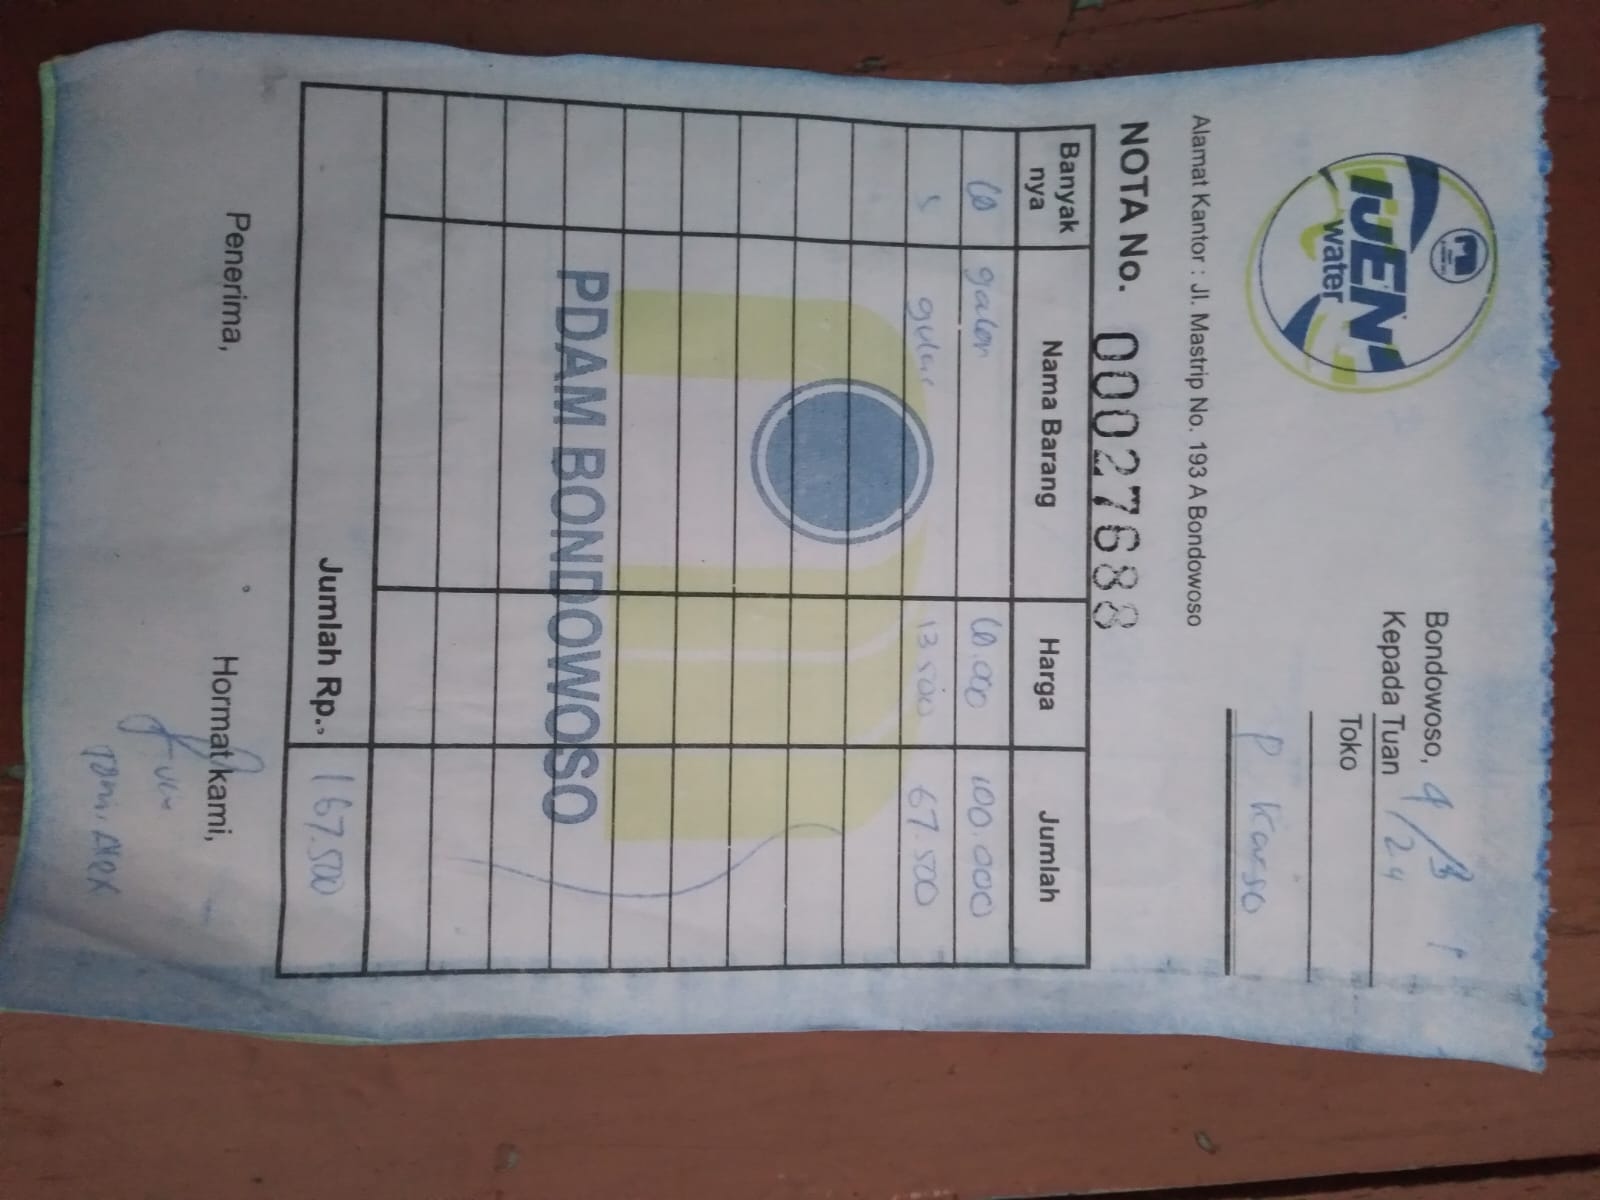 IJEN
water
Bondowoso, 9/3
24
Kepada Tuan
Toko
P Karso
Alamat Kantor : Jl. Mastrip No. 193 A Bondowoso
NOTA No. 00027688
Banyak nya Nama Barang Harga Jumlah
10 galon 10.000 100.000
5 gelas 13.500 67.500
PDAM BONDOWOSO
Jumlah Rp.. 167.500
Penerima, Hormat kami,